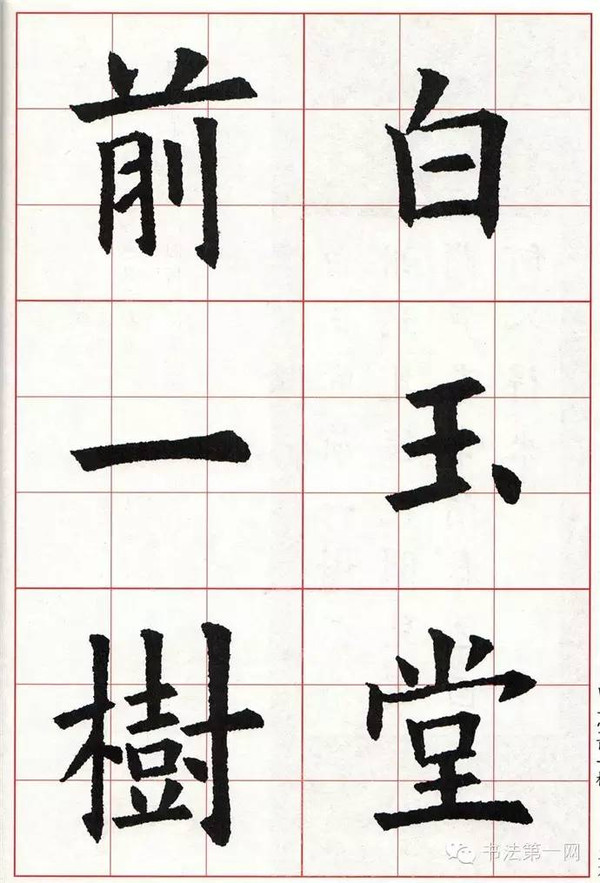 白玉堂
前一樹
书法第一网